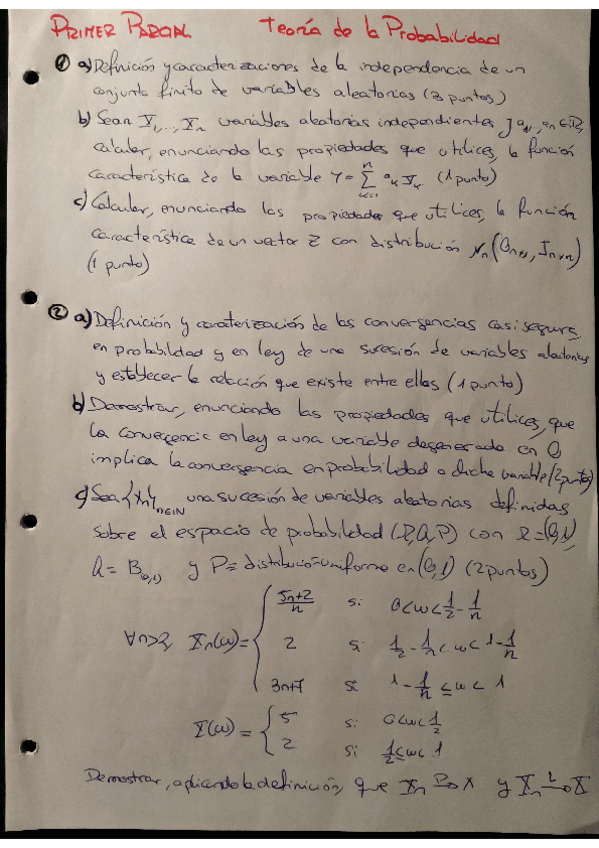 PRIMER PARCIAL Teoría de la Probabilidad
① a) Definición y caracterizaciones de la independencia de un
conjunto finito de variables aleatorias (3 puntos)
b) Sean X₁,..., Xₙ variables aleatorias independientes y a₁,...,aₙ ∈ ℝ,
calcular, enunciando las propiedades que utilices, la función
característica de la variable Y = Σₖ₌₁ⁿ aₖ Xₖ (1 punto)
c) Calcular, enunciando las propiedades que utilices, la función
característica de un vector Z con distribución Nₙ(0ₙₓ₁, Iₙₓₙ)
(1 punto)
② a) Definición y caraterización de las convergencias casi segura,
en probabilidad y en ley de una sucesión de variables aleatorias
y establecer la relación que existe entre ellas (1 punto)
b) Demostrar, enunciando las propiedades que utilices, que
la convergencia en ley a una variable degenerada en 0,
implica la convergencia en probabilidad a dicha variable (2 puntos)
c) Sea {Xₙ}ₙ∈ℕ una sucesión de variables aleatorias definidas
sobre el espacio de probabilidad (Ω, a, P) con Ω = (0,1),
a = B₍₀,₁₎ y P ≡ distribución uniforme en (0,1) (2 puntos)
∀n>2, Xₙ(ω) = { (5n+2)/n si 0<ω<1/2 - 1/n
2 si 1/2 - 1/n ≤ ω < 1 - 1/n
3n+7 si 1 - 1/n ≤ ω < 1
X(ω) = { 5 si 0<ω<1/2
2 si 1/2 ≤ ω < 1
Demostrar, aplicando la definición, que Xₙ →ᴾ X y Xₙ →ᴸ X